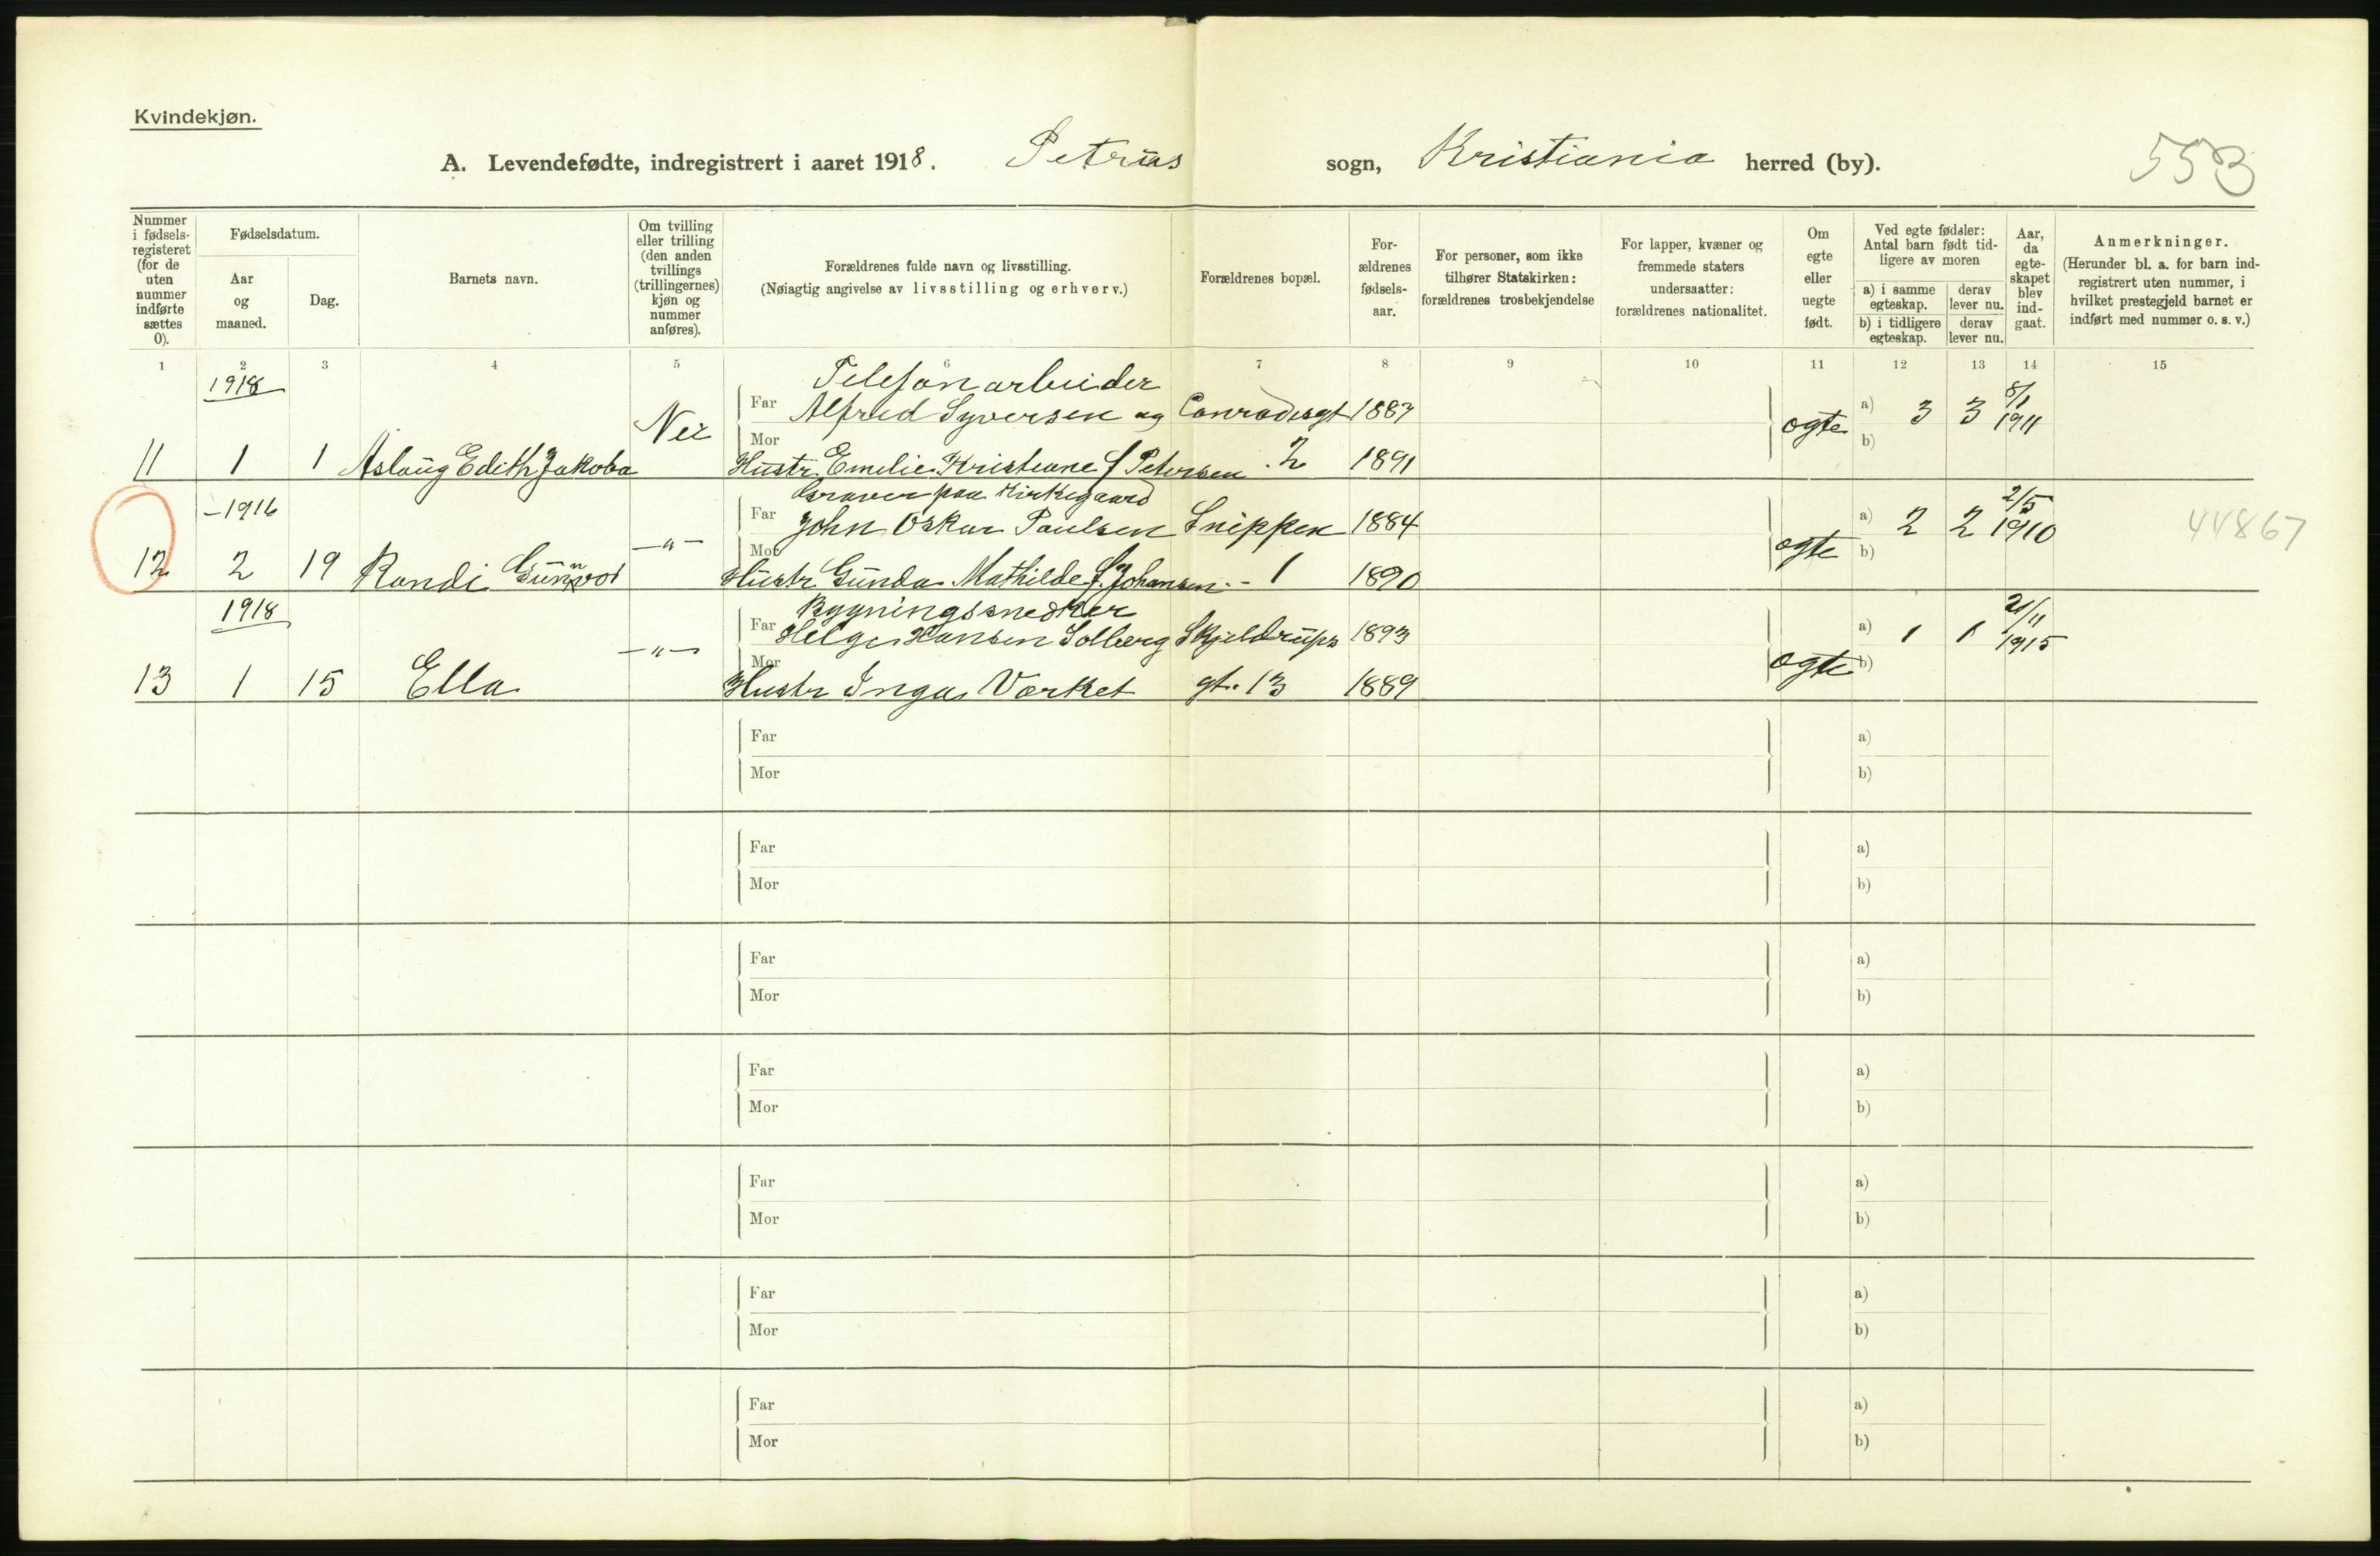 Kvindekjøn.
A. Levendefødte, indregistrert i aaret 1918. Petrus sogn, Kristiania herred (by). 553
Nummer i fødsels-registeret (for de uten nummer indførte sættes 0).
Fødselsdatum.
Aar og maaned.
Dag.
Barnets navn.
Om tvilling eller trilling (den anden tvillings (trillingernes) kjøn og nummer anføres).
Forældrenes fulde navn og livsstilling.
(Nøiagtig angivelse av livsstilling og erhverv.)
Forældrenes bopæl.
For-ældrenes fødsels-aar.
For personer, som ikke tilhører Statskirken: forældrenes trosbekjendelse
For lapper, kvæner og fremmede staters undersaatter: forældrenes nationalitet.
Om egte eller uegte født.
Ved egte fødsler: Antal barn født tid-ligere av moren
a) i samme egteskap.
derav lever nu.
b) i tidligere egteskap.
derav lever nu.
Aar, da egte-skapet blev ind-gaat.
Anmerkninger.
(Herunder bl. a. for barn ind-registrert uten nummer, i hvilket prestegjeld barnet er indført med nummer o. s. v.)
1 2 3 4 5 6 7 8 9 10 11 12 13 14 15
1918 Telefonarbeider
Nei Far Alfred Syversen og Conradisgt 1883 ogte a) 3 3 8/1 1911
11 1 1 Aslaug Edith Jakoba Mor Hustr. Emelie Kristiane f Petersen . 2 1891 b)
Graver paa Kirkegaard
- 1916 Far John Oskar Paulsen Snippen 1884 a) 2 2 2/5 1910 44867
12 2 19 Randi Gunvor -"- Mor Hustr Gunda Mathilde f. Johansen. - 1 1890 ogte b)
1918 Bygningssnedker
Far Helge Hansen Solberg Skjeldrups 1893 a) 1 1 21/11 1915
13 1 15 Ella -"- Mor Hustr Inga Værket gt. 13 1889 ogte b)
Far a)
Mor b)
Far a)
Mor b)
Far a)
Mor b)
Far a)
Mor b)
Far a)
Mor b)
Far a)
Mor b)
Far a)
Mor b)